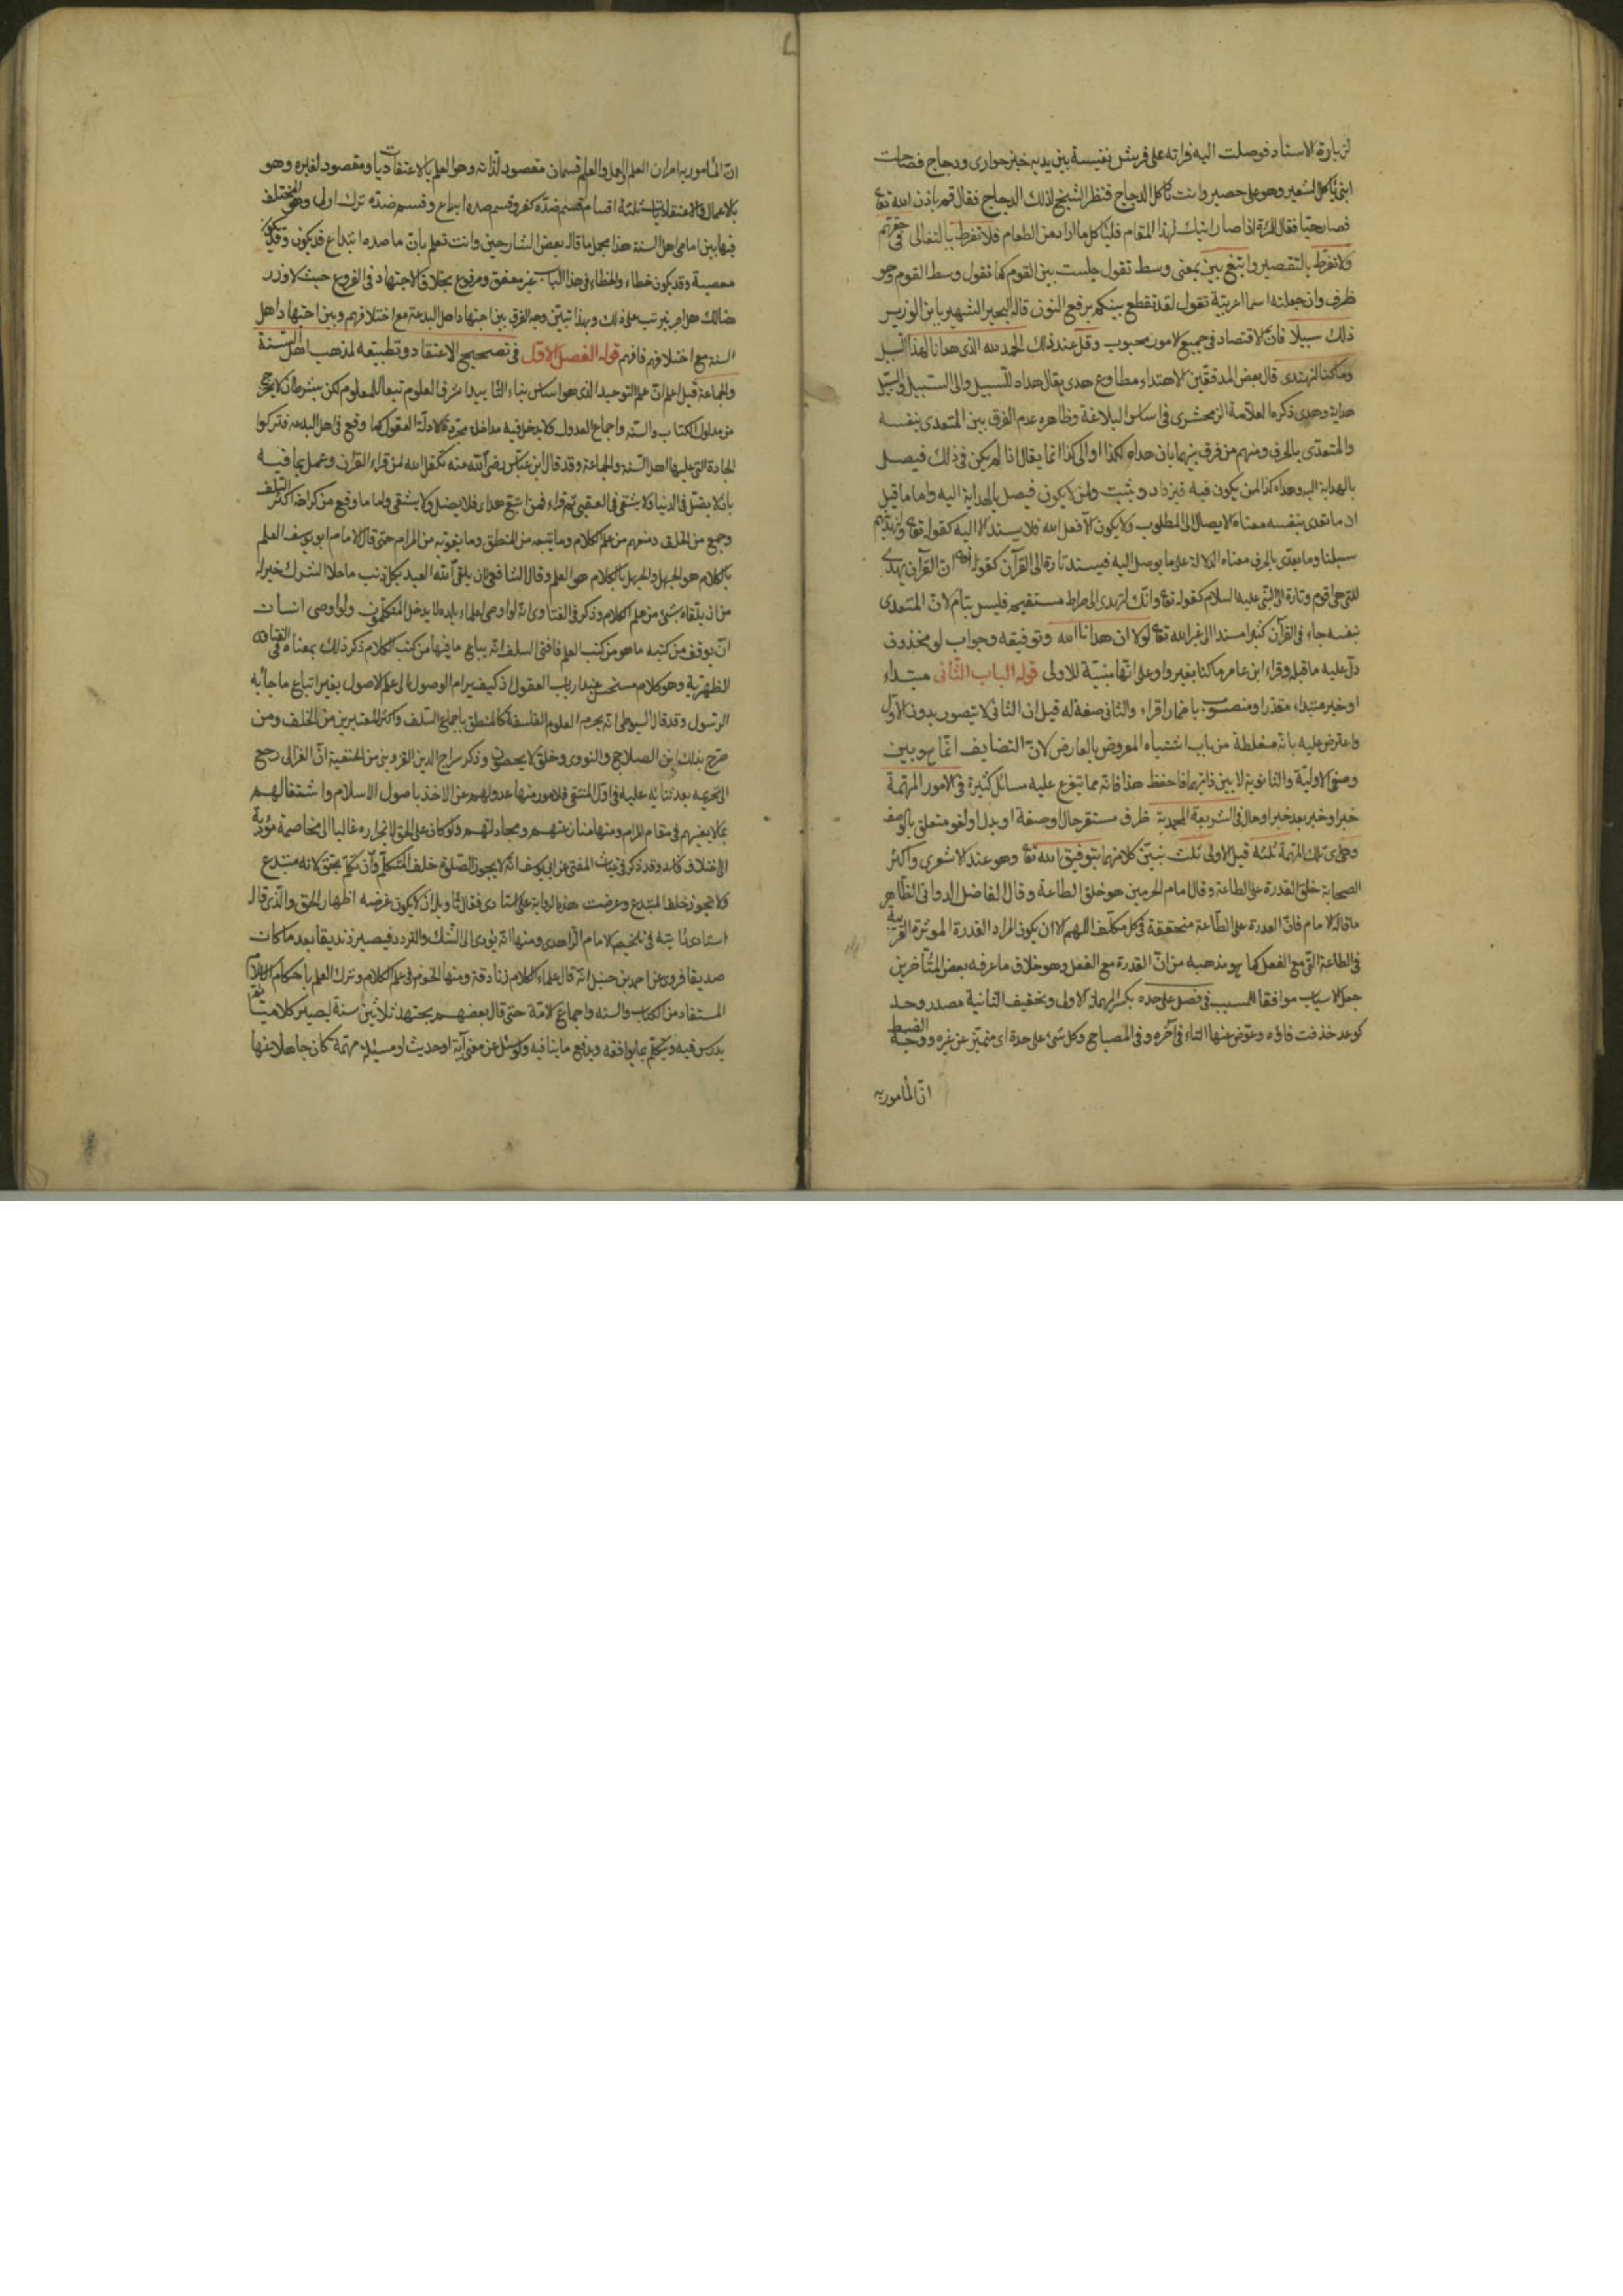 لزيارة الاستاد فوصلت اليه فراته على فرش نفيسة بين يديه خبز حوارى ودجاج فصاحت
ابنى يأكل الشعير وهو على حصير وانت تأكل الدجاج فنظر الشيخ لذلك الدجاج فقال قم باذن الله تع
فصار حيا فقال للمرءة اذا صار ابنك لهذا المقام فليأكل ما اراد من الطعام فلا تفرط بالتغالى فى حقهم
ولا تفرط بالتقصير وابتغ بين بمعنى وسط تقول جلست بين القوم كما تقول وسط القوم وهو
ظرف وان جعلته اسما اعربته تقول لقد تقطع بينكم برفع النون قاله البحير الشهير بابن الوزير
ذلك سبيلا فان الاقتصاد فى جميع الامور محبوب وقل عند ذلك الحمد لله الذى هدانا لهذا السبيل
وما كنا لنهتدى قال بعض المدققين الاهتداء مطاوع هدى يقال هداه للسبيل والى السبيل والسبيل
هداية وهدى ذكره العلامة الزمخشرى فى اساس البلاغة وظاهره عدم الفرق بين المتعدى بنفسه
والمتعدى بالحرف ومنهم من فرق بينهما بان هداه لكذا او الى كذا انما يقال اذا لم يكن فى ذلك فيصل
بالهداية اليه وهداه كذا لمن يكون فيه فيزداد ويثبت ولمن لا يكون فيصل بالهداية اليه واما ما قيل
ان ما تعدى بنفسه معناه الايصال الى المطلوب ولا يكون الا فعل الله فلا يسند الا اليه كقوله تع لنهدينهم
سبلنا وما تعدى بالحرف معناه الدلالة على ما يوصل اليه فيسند تارة الى القرآن كقوله تع ان القرآن يهدى
للتى هى اقوم وتارة الى النبى عليه السلام كقوله تع وانك لتهدى الى صراط مستقيم فليس بتام لان المتعدى
بنفسه جاء فى القرآن كثيرا مسندا الى غير الله تع لولا ان هدانا الله وتوفيقه وجواب لو محذوف
دل عليه ما قبله وقراء ابن عامر ما كنا بغير واو على انها مبنية للاولى قوله الباب الثانى مبتداء
او خبر مبتداء مقدر او منصوب باضمار اقراء والثانى صفة له قيل ان الثانى لا يتصور بدون الاول
واعترض عليه بانه مغلطة من باب اشتباه المعروض بالعارض لان التضايف انما هو بين
وصفى الاولية والثانوية لا بين ذاتيهما فاحفظ هذا فانه مما يتفرع عليه مسائل كثيرة فى الامور المهمة
خبر او خبر بعد خبر او حال فى الشريعة المحمدية ظرف مستقر حال او صفة او بدل او لغو متعلق بالوصف
وهى اى تلك المهمة ثلثة قيل الاولى ثلث نبين كلا منها بتوفيق الله تع وهو عند الاشعرى واكثر
الصحابة خلق القدرة على الطاعة وقال امام الحرمين هو خلق الطاعة وقال الفاضل الدوانى الظاهر
ما قاله الامام فان القدرة على الطاعة متحققة فى كل مكلف اللهم الا ان يكون المراد القدرة المؤثرة القريبة
فى الطاعة التى مع الفعل كما هو مذهبه من ان القدرة مع الفعل وهو خلاف ما عرفه بعض المتأخرين
جعل الاسباب موافقا للمسبب فى فصل على حده بكسر المهملة الاولى وتخفيف الثانية مصدر وحد
كوعد حذفت فاؤه وعوض عنها التاء فى آخره وفى المصباح وكل شئ على حدة اى متميز عن غيره ووجه الضبط
ان المأمور به
ان المأمور به امران العلم والعمل والعلم قسمان مقصود لذاته وهو العلم بالاعتقاديات ومقصود لغيره وهو
بالاعمال والاعتقاديات ثلثة اقسام قسم ضده كفر وقسم ضده ابتداع وقسم ضده ترك اولى وهى المختلف
فيها بين امامى اهل السنة هذا مجمل ما قاله بعض الشارحين وانت تعلم بان ما ضده ابتداع قد يكون وقد يكون
معصية وقد يكون خطاء والخطاء فى هذا الباب غير معفو ومرفوع بخلاف الاجتهاد فى الفروع حيث لا وزر
هنالك هل اجر يترتب على ذلك وبهذا تبين وجه الفرق بين اجتهاد اهل البدعة مع اختلافهم وبين اجتهاد اهل
السنة مع اختلافهم فافهم قوله الفصل الاول فى تصحيح الاعتقاد وتطبيقه لمذهب اهل السنة
والجماعة قيل اعلم ان علم التوحيد الذى هو اساس بناء التأييد اشرف العلوم تبعا للمعلوم لكن بشرط ان لا يخرج
من مدلول الكتاب والسنة واجماع العدول ولا يدخل فيه مداخل مجرد الادلة العقول كما وقع فى اهل البدعة فتركوا
الجادة التى عليها اهل السنة والجماعة وقد قال ابن عباس رضى الله عنه تكفل الله لمن قراء القرآن وعمل بما فيه
بان لا يضل فى الدنيا ولا يشقى فى العقبى ثم قراء فمن اتبع هداى فلا يضل ولا يشقى واما ما وقع من كراهة اكثر السلف
وجمع من الخلف ومنعهم من علم الكلام وما يتبعه من المنطق وما يقربه من المرام حتى قال الامام ابو يوسف العلم
بالكلام هو الجهل والجهل بالكلام هو العلم وقال الشافعى لان يلقى الله العبد بكل ذنب ما خلا الشرك خير له
من ان يلقاه بشئ من علم الكلام وذكر فى الفتاوى انه لو اوصى لعلماء بلده لا يدخل المتكلمون ولو اوصى انسان
ان يوقف من كتبه ما هو من كتب العلم فافتى السلف انه يباع ما فيها من كتب الكلام ذكر ذلك بمعناه فى الفتاوى
الظهيرية وهو كلام مستحسن عند ارباب العقول اذ كيف يرام الوصول الى علم الاصول بغير اتباع ما جاء به
الرسول وقد قال السيوطى انه يحرم العلوم الفلسفة كالمنطق باجماع السلف واكثر المعتبرين من الخلف ومن
صرح بذلك ابن الصلاح والنووى وخلق لا يحصون وذكر سراج الدين القزوينى من الحنفية ان الغزالى رجع
الى تحريمه بعد ثنائه عليه فى اول المنتقى فلامور منها عدولهم عن الاخذ باصول الاسلام واشتغالهم
بما لا يعنيهم فى مقام المرام ومنها منازعتهم ومجادلتهم ولو كان على الحق لانجراره غالبا الى مخاصمة مؤدية
الى اختلاف وقد ذكر فى غياث المفتى عن ابى يوسف انه لا يجوز الصلوة خلف المتكلم وان تكلم بحق لانه مبتدع
ولا تجوز خلف المبتدع وعرضت هذه الرواية على استادى فقال تأويله ان لا يكون غرضه اظهار الحق والذى قاله
استادى رأيته فى تلخيص الامام الزاهدى ومنها انه يؤدى الى الشك والتردد فيصير زنديقا بعد ما كان
صديقا فروى عن احمد بن حنبل انه قال علماء الكلام زنادقة ومنها الخوض فى علم الكلام وترك العلم باحكام الاسلام
المستفاد من الكتاب والسنة واجماع الامة حتى قال بعضهم يجتهد ثلاثين سنة ليصير كلاميا ثم
يدرس فيه ويتكلم بما يوافقه ويدفع ما ينافيه ولو سئل عن معنى آية او حديث او مسئلة مهمة كان جاهلا عنها